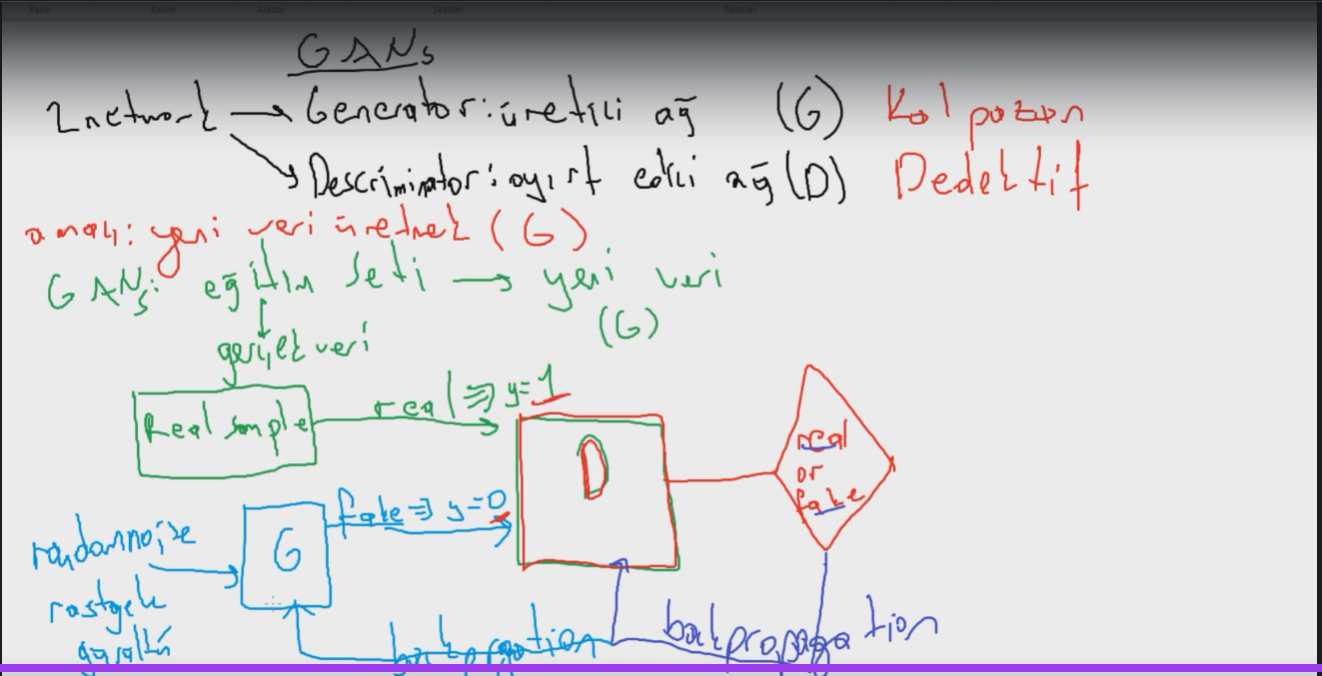 GANs
2 network → Generator: üretici ağ (G) Kalpazan
Descriminator: ayırt edici ağ (D) Dedektif
amaç: yeni veri üretmek (G)
GANs: eğitim seti → yeni veri
(G)
gerçek veri
real ⇒ y=1
Real sample
D
real
or
fake
fake ⇒ y=0
G
random noise
rastgele
gürültü
backpropagation